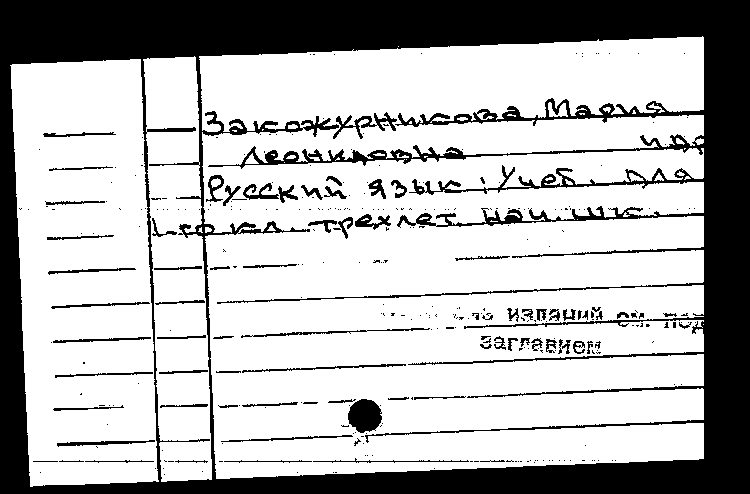 Закожурникова, Мария
Леонидовна идр
Русский язык : Учеб. для
1-го кл. трехлет. нач. шк.
изданий см. под
заглавием